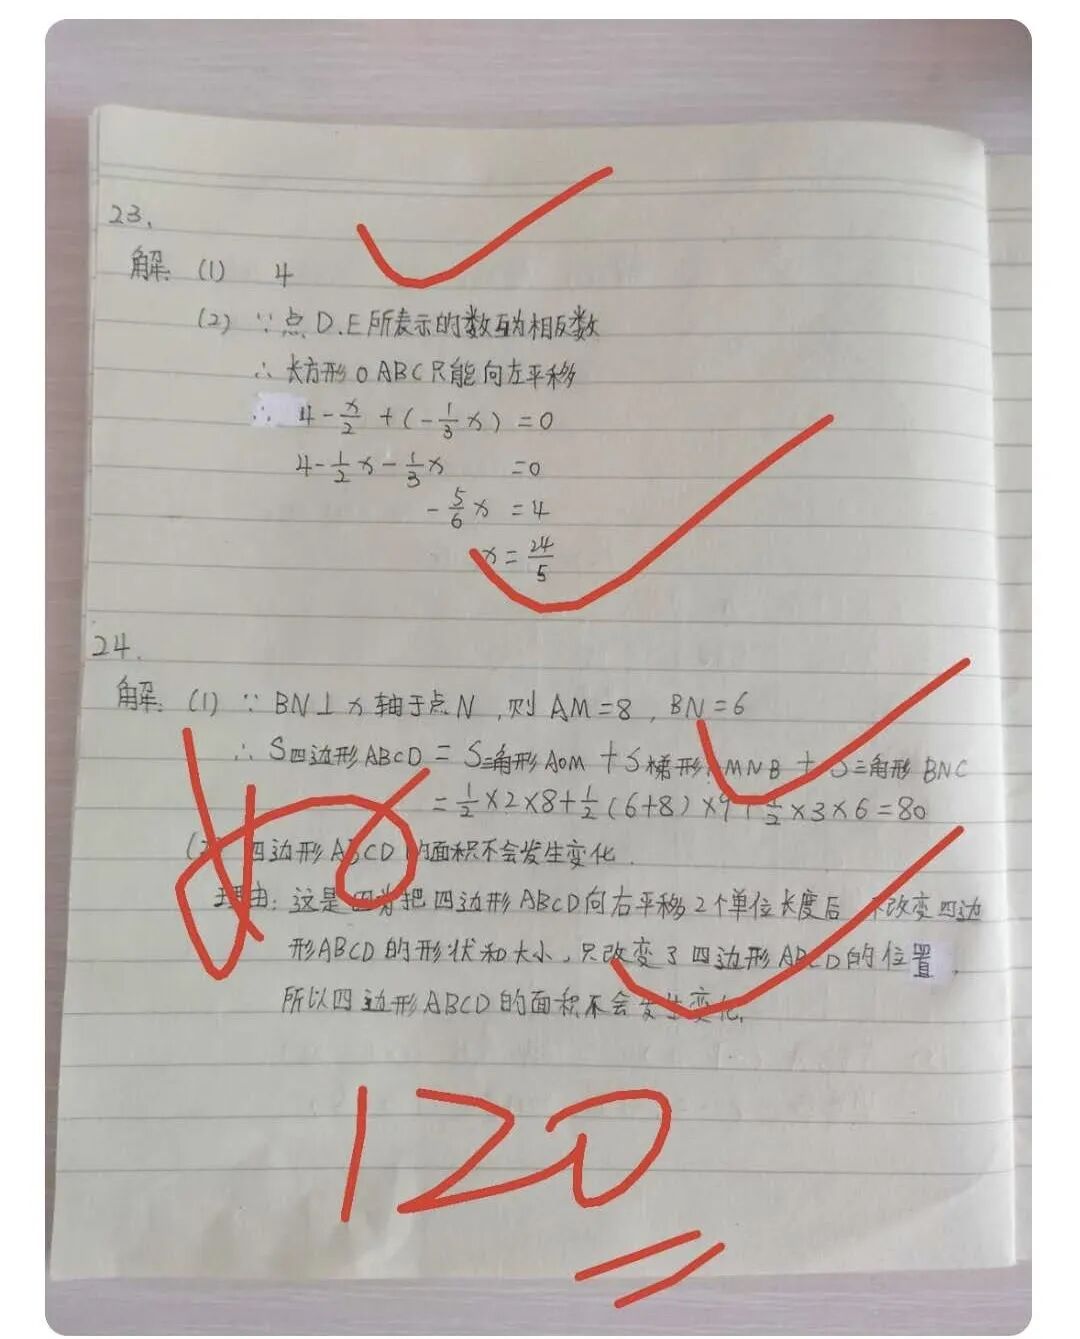 23.
解: (1) 4
(2) ∵点D.E所表示的数互为相反数
∴长方形OABC只能向左平移
∴ 4-x/2+(-1/3x)=0
4-1/2x-1/3x =0
-5/6x =4
x=24/5
24.
解: (1) ∵BN⊥x轴于点N,则AM=8,BN=6
∴S四边形ABCD=S三角形AOM+S梯形AMNB+S三角形BNC
=1/2×2×8+1/2(6+8)×9+1/2×3×6=80
(2) 四边形ABCD的面积不会发生变化.
理由:这是因为把四边形ABCD向右平移2个单位长度后 不改变四边
形ABCD的形状和大小,只改变了四边形ABCD的位置,
所以四边形ABCD的面积不会发生变化.
120